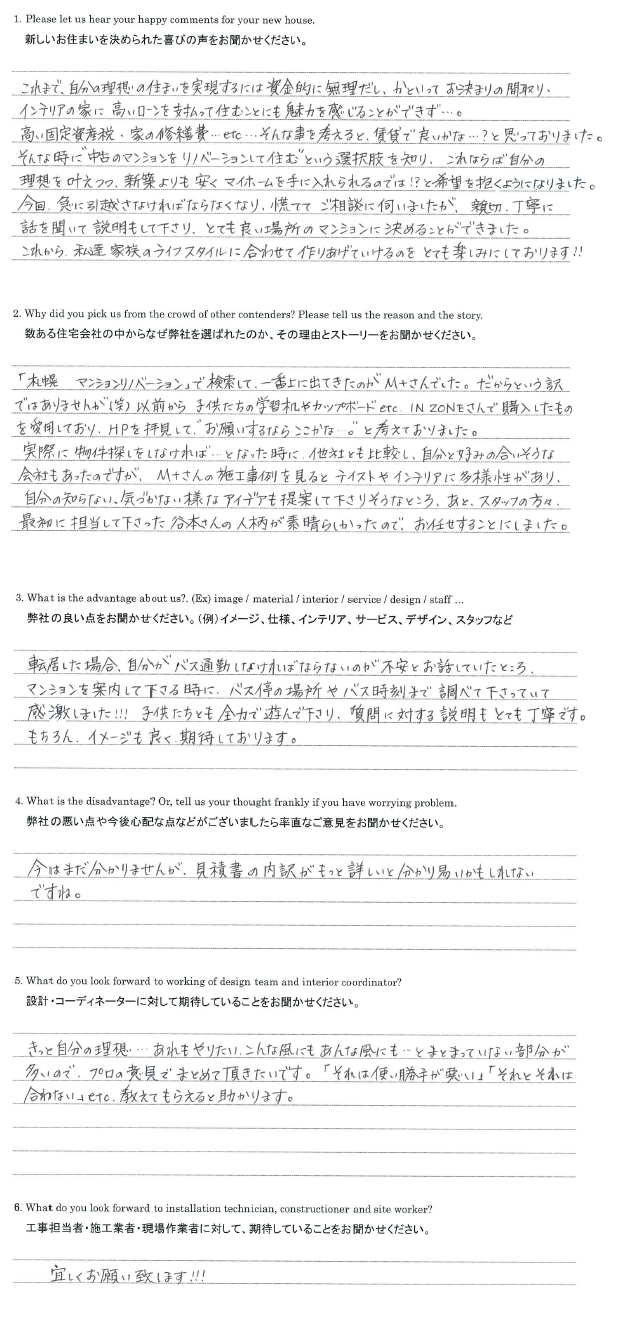 1. Please let us hear your happy comments for your new house.
新しいお住まいを決められた喜びの声をお聞かせください。
これまで、自分の理想の住まいを実現するには資金的に無理だし、かといってお決まりの間取り、
インテリアの家に高いローンを支払って住むことにも魅力を感じることができず…。
高い固定資産税・家の修繕費…etc…そんな事を考えると、賃貸で良いかな…?と思っておりました。
そんな時に"中古のマンションをリノベーションして住む"という選択肢を知り、これならば自分の
理想を叶えつつ、新築よりも安くマイホームを手に入れられるのでは!?と希望を抱くようになりました。
今回、急に引越さなければならなくなり、慌ててご相談に伺いましたが、親切、丁寧に
話を聞いて説明もして下さり、とても良い場所のマンションに決めることができました。
これから、私達家族のライフスタイルに合わせて作りあげていけるのをとても楽しみにしております!!
2. Why did you pick us from the crowd of other contenders? Please tell us the reason and the story.
数ある住宅会社の中からなぜ弊社を選ばれたのか、その理由とストーリーをお聞かせください。
「札幌 マンションリノベーション」で検索して、一番上に出てきたのがM+さんでした。だからという訳
ではありませんが(笑)以前から子供たちの学習机やカップボードetc. IN ZONEさんで購入したもの
を愛用しており、HPを拝見して、"お願いするならここかな…。"と考えておりました。
実際に物件探しをしなければ…となった時に、他社とも比較し、自分と好みの合いそうな
会社もあったのですが、M+さんの施工事例を見るとテイストやインテリアに多様性があり、
自分の知らない、気づかない様なアイデアも提案して下さりそうなところ、あと、スタッフの方々、
最初に担当して下さった谷本さんの人柄が素晴らしかったので、お任せすることにしました。
3. What is the advantage about us?. (Ex) image / material / interior / service / design / staff ...
弊社の良い点をお聞かせください。(例)イメージ、仕様、インテリア、サービス、デザイン、スタッフなど
転居した場合、自分がバス通勤しなければならないのが不安とお話していたところ、
マンションを案内して下さる時に、バス停の場所やバス時刻まで調べて下さっていて
感激しました!!! 子供たちとも全力で遊んで下さり、質問に対する説明もとても丁寧です。
もちろん、イメージも良く、期待しております。
4. What is the disadvantage? Or, tell us your thought frankly if you have worrying problem.
弊社の悪い点や今後心配な点などがございましたら率直なご意見をお聞かせください。
今はまだ分かりませんが、見積書の内訳がもっと詳しいと分かり易いかもしれない
ですね。
5. What do you look forward to working of design team and interior coordinator?
設計・コーディネーターに対して期待していることをお聞かせください。
きっと自分の理想…あれもやりたい、こんな風にもあんな風にも…とまとまっていない部分が
多いので、プロの意見でまとめて頂きたいです。「それは使い勝手が悪い」「それとそれは
合わない」etc. 教えてもらえると助かります。
6. What do you look forward to installation technician, constructioner and site worker?
工事担当者・施工業者・現場作業者に対して、期待していることをお聞かせください。
宜しくお願い致します!!!